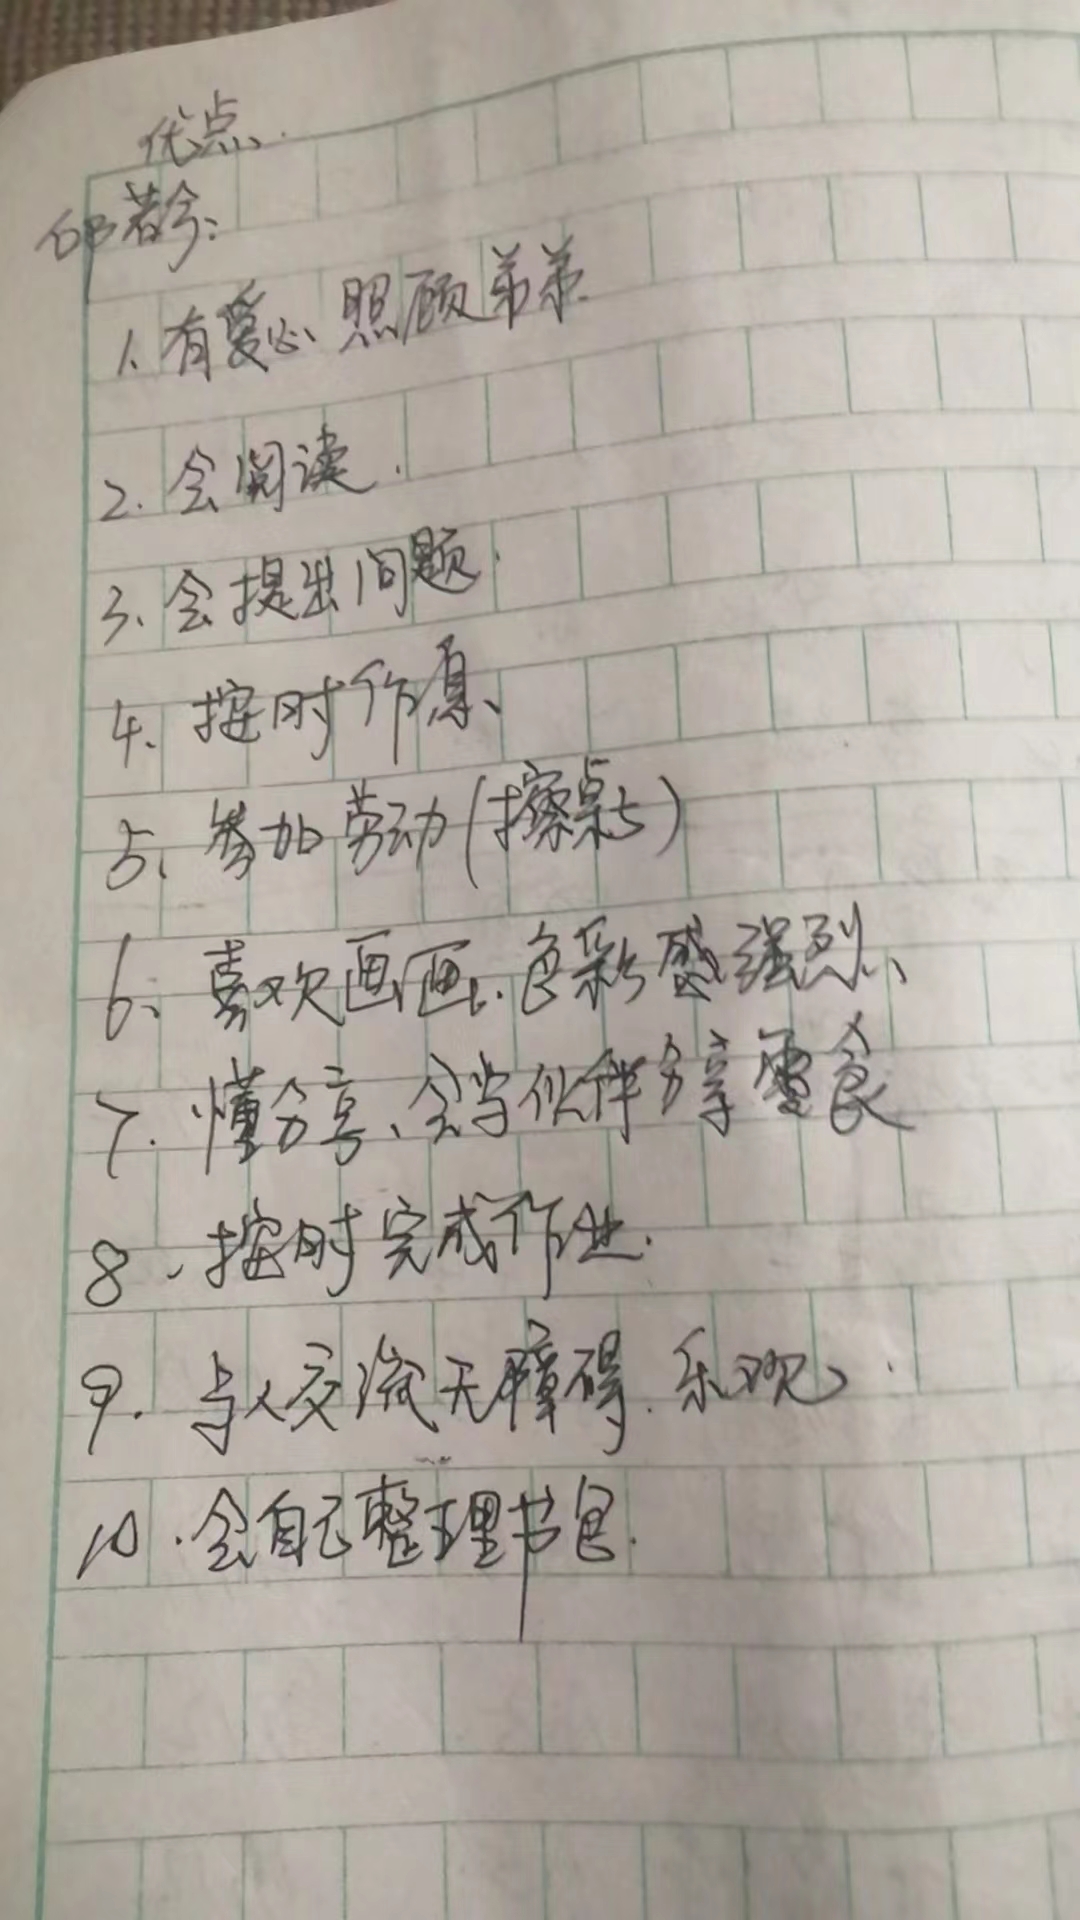 优点.
邱若兮:
1. 有爱心 照顾弟弟.
2. 会阅读.
3. 会提出问题.
4. 按时作息、
5. 参加劳动(擦桌子)
6. 喜欢画画. 色彩感强烈、
7. 懂分享、会与伙伴分享零食
8、按时完成作业.
9. 与人交流无障碍. 乐观.
10. 会自己整理书包.